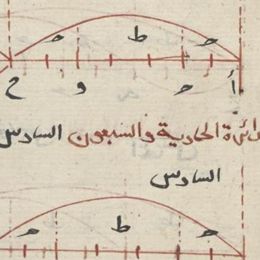 ح ط ح
أ ح و ح
دائرة الحادية والسبعون السادس
السادس
ح ط ح